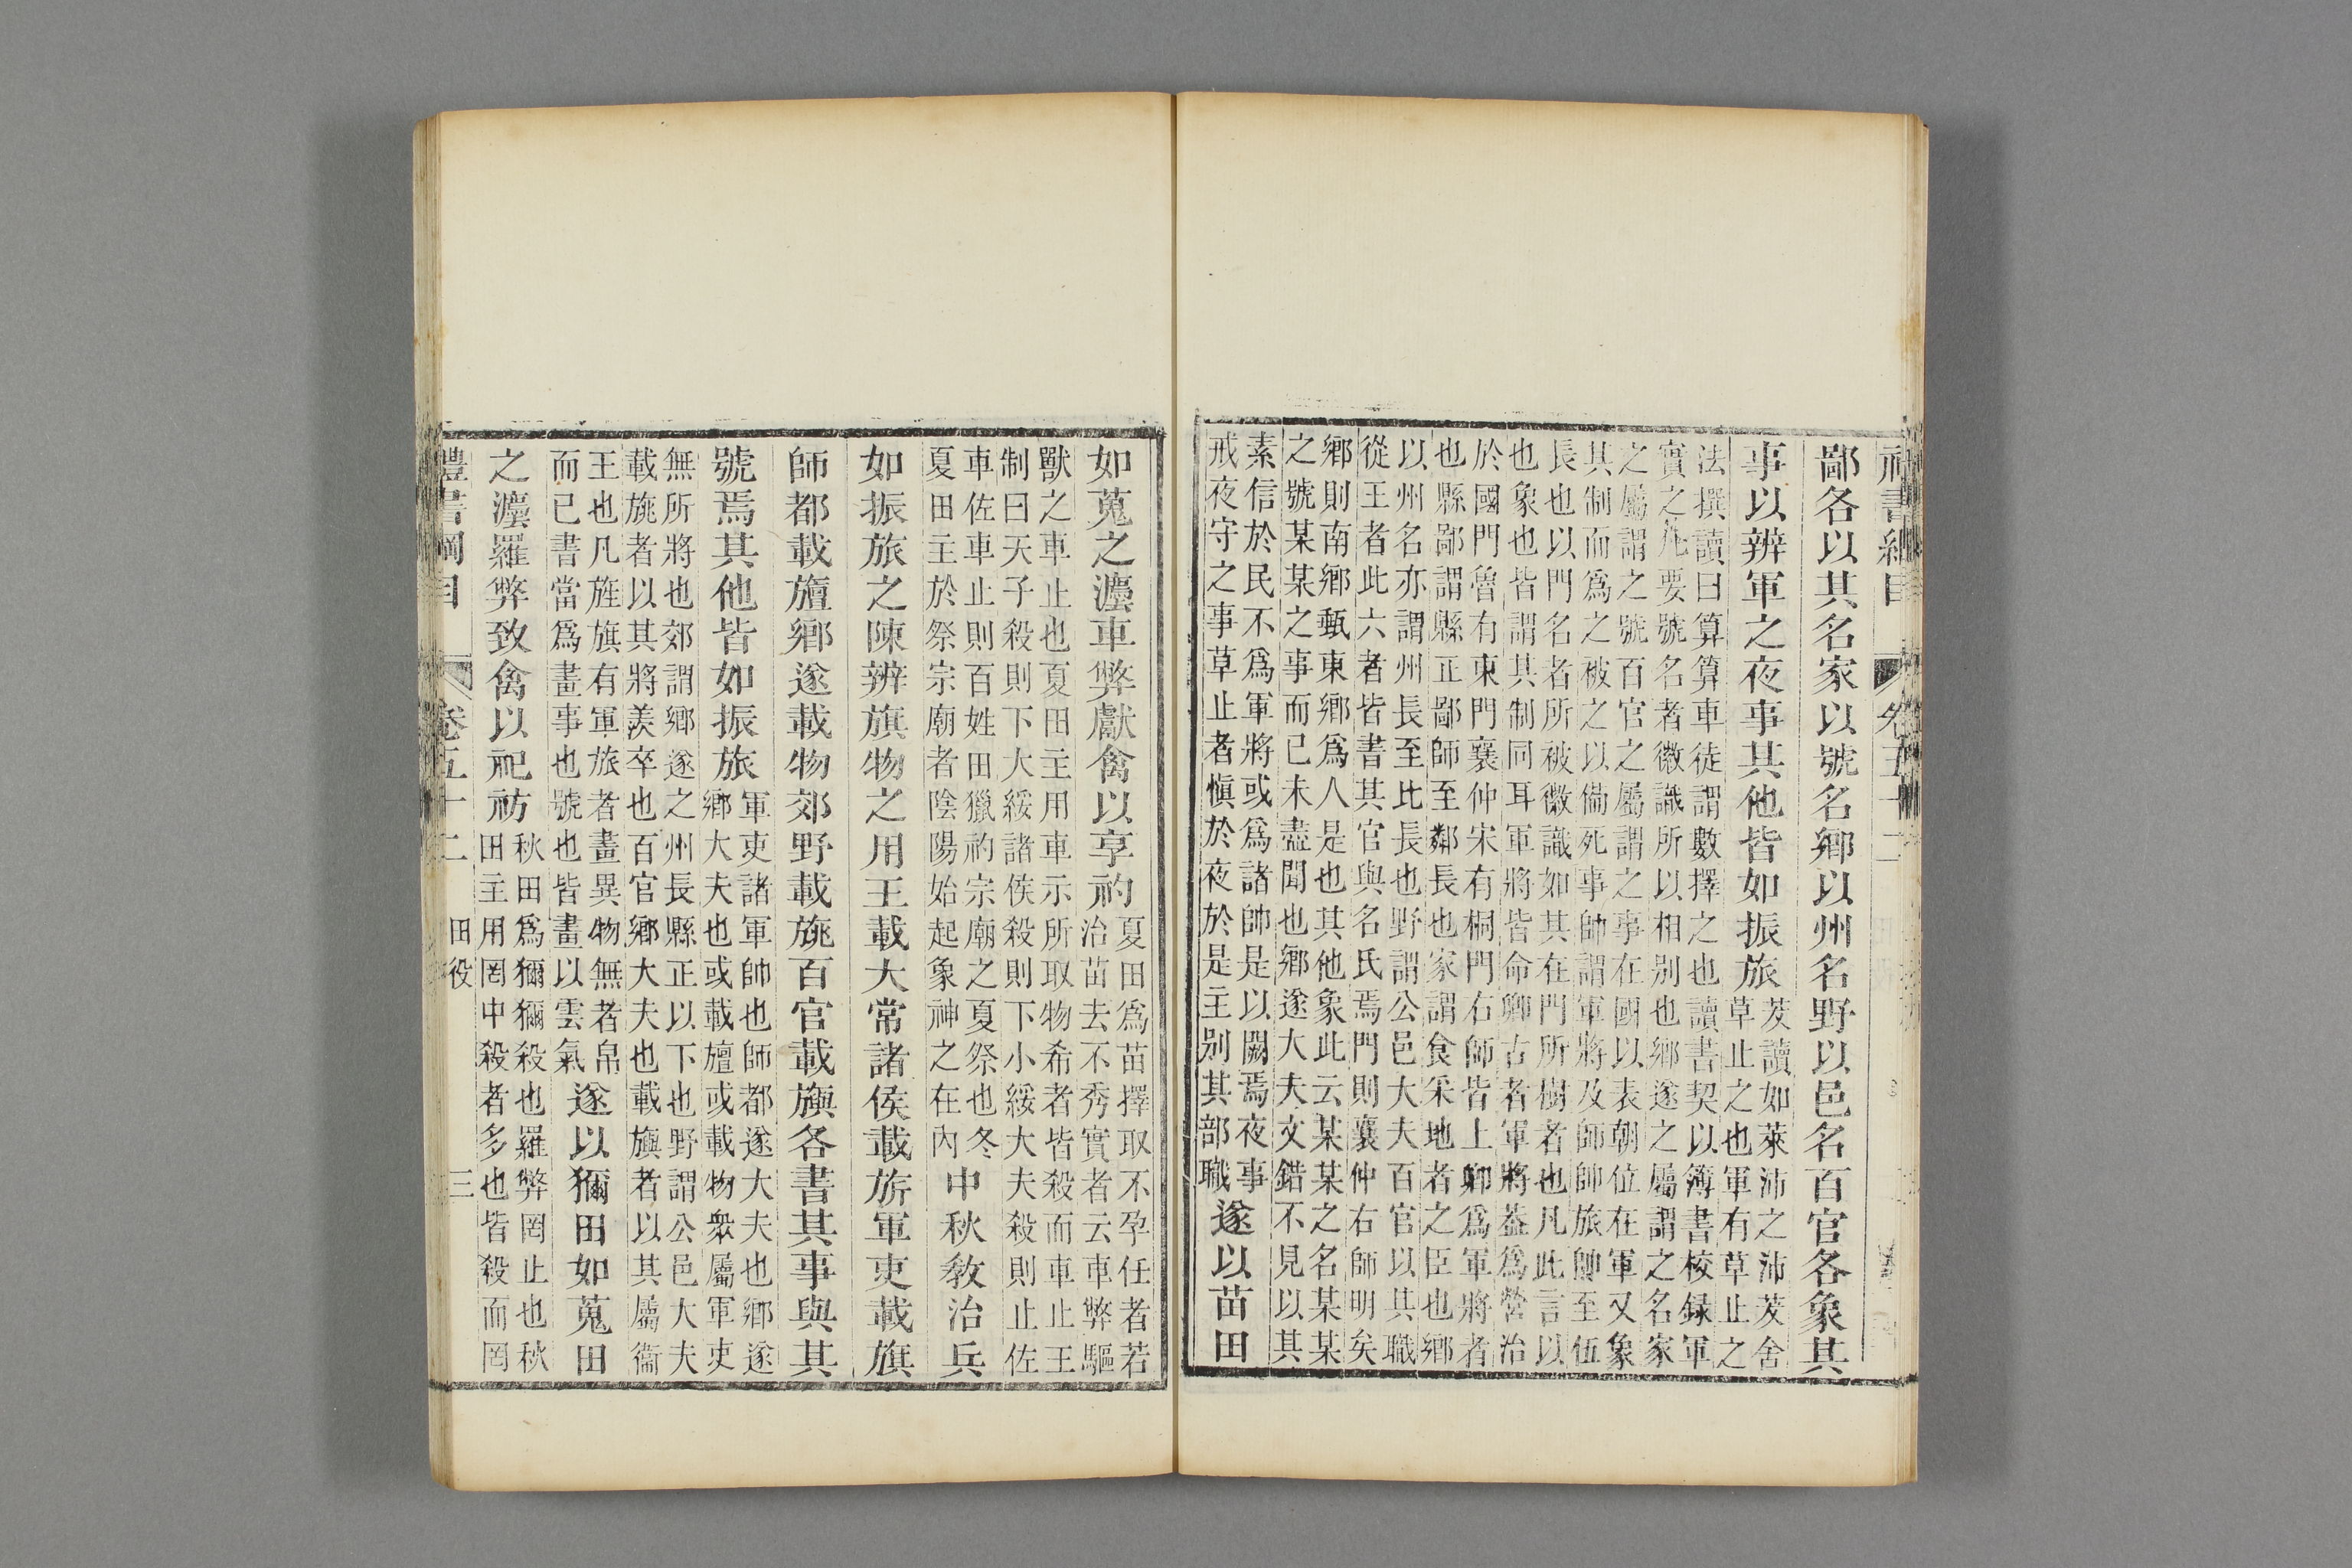 禮書綱目 卷五十二
鄙各以其名家以號名鄉以州名野以邑名百官各象其
事以辨軍之夜事其他皆如振旅
茇讀如萊沛之沛茇舍
草止之也軍有草止之
法撰讀曰算算車徒謂數擇之也讀書契以簿書校録軍
實之凡要號名者徽識所以相别也鄉遂之屬謂之名家
之屬謂之號百官之屬謂之事在國以表朝位在軍又象
其制而爲之被之以備死事帥謂軍將及師帥旅帥至伍
長也以門名者所被徽識如其在門所樹者也凡此言以
也象也皆謂其制同耳軍將皆命卿古者軍將葢爲營治
於國門魯有東門襄仲宋有桐門右師皆上卿爲軍將者
也縣鄙謂縣正鄙師至鄰長也家謂食采地者之臣也鄉
以州名亦謂州長至比長也野謂公邑大夫百官以其職
從王者此六者皆書其官與名氏焉門則襄仲右師明矣
鄉則南鄉甄東鄉爲人是也其他象此云某某之名某某
之號某某之事而已未盡聞也鄉遂大夫文錯不見以其
素信於民不爲軍將或爲諸帥是以闕焉夜事
戒夜守之事草止者愼於夜於是主别其部職
遂以苗田
如蒐之灋車弊獻禽以享礿
夏田爲苗擇取不孕任者若
治苗去不秀實者云車弊驅
獸之車止也夏田主用車示所取物希者皆殺而車止王
制曰天子殺則下大綏諸侯殺則下小綏大夫殺則止佐
車佐車止則百姓田獵礿宗廟之夏祭也冬
夏田主於祭宗廟者陰陽始起象神之在內
中秋敎治兵
如振旅之陳辨旗物之用王載大常諸侯載旂軍吏載旗
師都載旜鄉遂載物郊野載旐百官載旟各書其事與其
號焉其他皆如振旅
軍吏諸軍帥也師都遂大夫也鄉遂
鄉大夫也或載旜或載物衆屬軍吏
無所將也郊謂鄉遂之州長縣正以下也野謂公邑大夫
載旐者以其將羨卒也百官鄉大夫也載旟者以其屬衞
王也凡旌旗有軍旅者畫異物無者帛
而已書當爲畫事也號也皆畫以雲氣
遂以獮田如蒐田
之灋羅弊致禽以祀祊
秋田爲獮獮殺也羅弊罔止也秋
田主用罔中殺者多也皆殺而罔
禮書綱目 卷五十二 田役 三